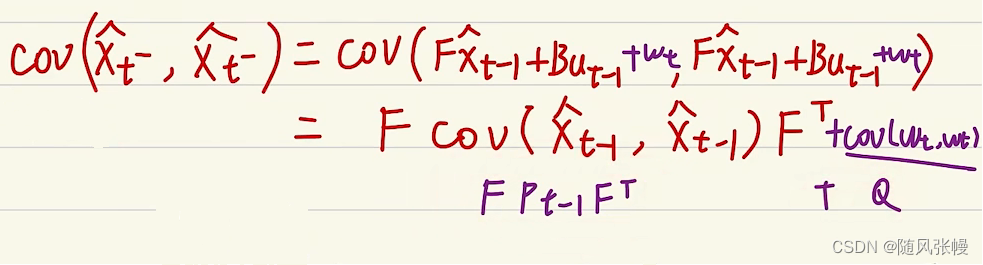 cov(x̂ₜ⁻, x̂ₜ⁻) = cov(Fx̂ₜ₋₁+Buₜ₋₁+wₜ, Fx̂ₜ₋₁+Buₜ₋₁+wₜ)
= F cov(x̂ₜ₋₁, x̂ₜ₋₁) Fᵀ+cov(wₜ,wₜ)
F Pₜ₋₁ Fᵀ + Q
CSDN @随风张幔